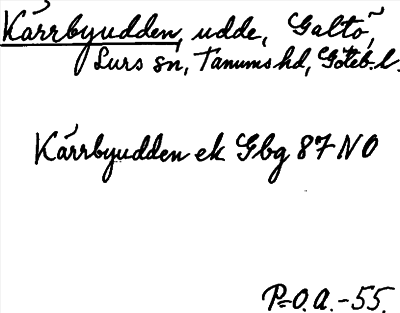 Kärrbyudden, udde, Galtö,
Lurs sn, Tanums hd, Göteb. l.
Kärrbyudden ek Gbg 87 NO
P=O.A.-55.